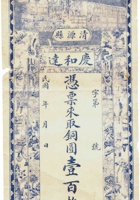 清源縣
慶和達
字第 號
憑票來取銅圓壹百枚
年 月 日